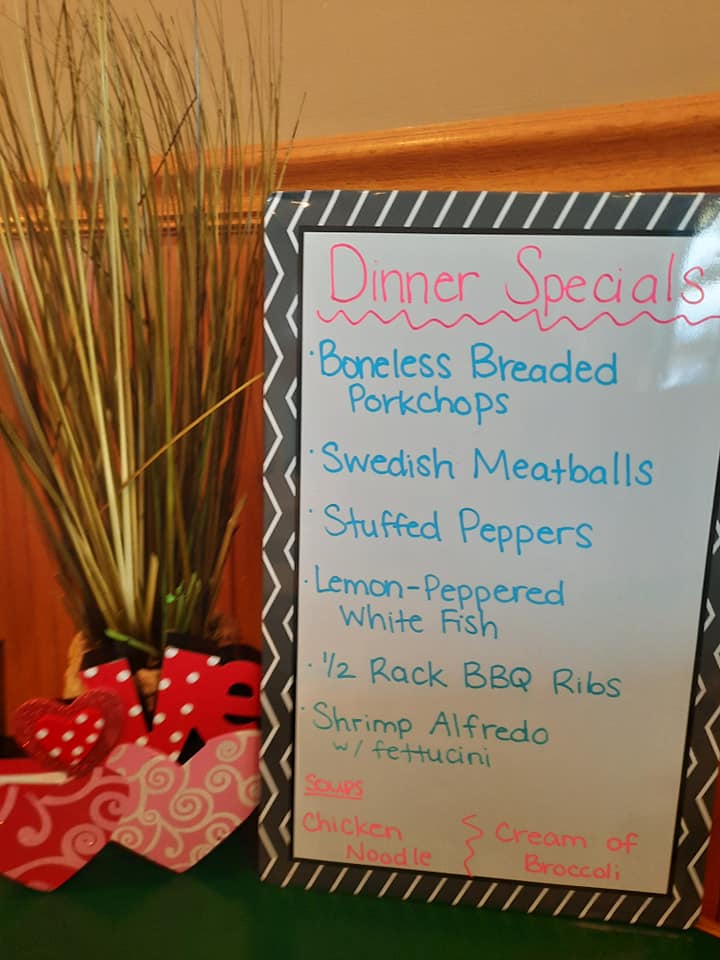 Dinner Specials
· Boneless Breaded
Porkchops
· Swedish Meatballs
· Stuffed Peppers
· Lemon-Peppered
White Fish
· 1/2 Rack BBQ Ribs
· Shrimp Alfredo
w/ fettucini
Soups
Chicken
Noodle
Cream of
Broccoli